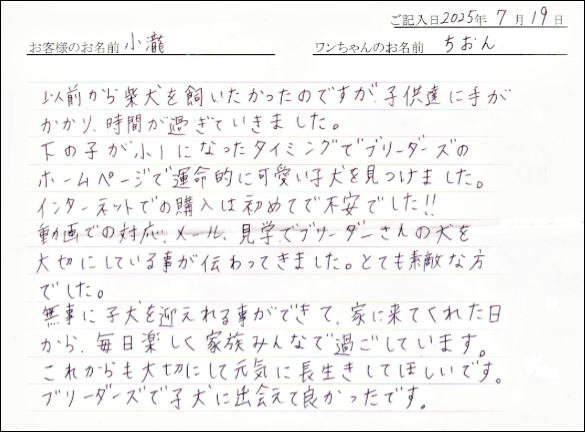 ご記入日 2025年 7月 19日
お客様のお名前 小瀧 ワンちゃんのお名前 ちおん
以前から柴犬を飼いたかったのですが、子供達に手が
かかり、時間が過ぎていきました。
下の子が小1になったタイミングでブリーダーズの
ホームページで運命的に可愛い子犬を見つけました。
インターネットでの購入は初めてで不安でした!!
動画での対応、メール、見学でブリーダーさんの犬を
大切にしている事が伝わってきました。とても素敵な方
でした。
無事に子犬を迎えれる事ができて、家に来てくれた日
から、毎日楽しく家族みんなで過ごしています。
これからも大切にして元気に長生きしてほしいです。
ブリーダーズで子犬に出会えて良かったです。